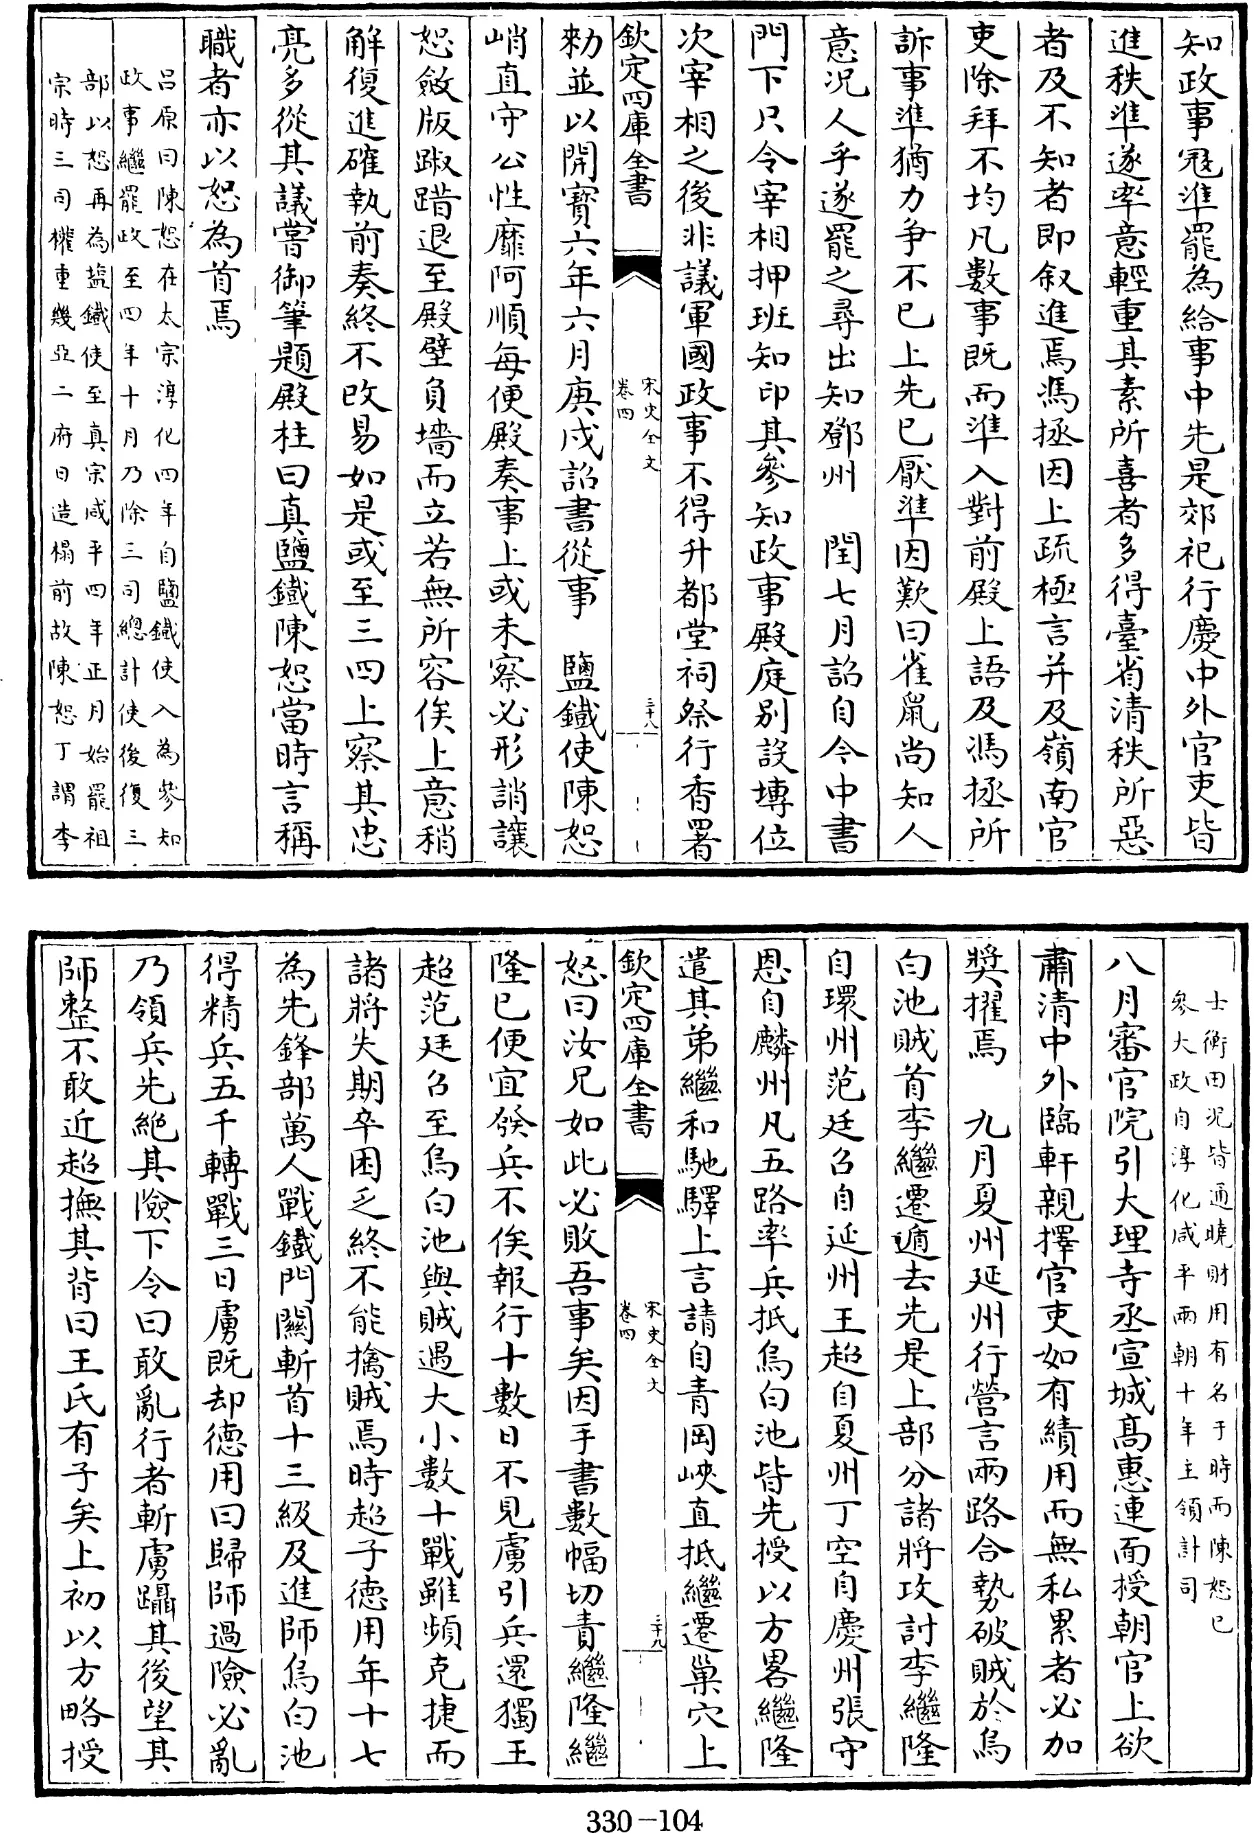 知政事冦準罷為給事中先是郊祀行慶中外官吏皆
進秩準遂率意輕重其素所喜者多得臺省清秩所惡
者及不知者即叙進焉馮拯因上疏極言并及嶺南官
吏除拜不均凡數事既而準入對前殿上語及馮拯所
訴事準猶力争不已上先已厭準因歎曰雀鼠尚知人
意况人乎遂罷之尋出知鄧州　閏七月詔自今中書
門下只令宰相押班知印其參知政事殿庭别設塼位
次宰相之後非議軍國政事不得升都堂祠祭行香署
欽定四庫全書
宋史全文
卷四
三十八
勑並以開寳六年六月庚戌詔書從事　鹽鐵使陳恕
峭直守公性靡阿順每便殿奏事上或未察必形誚讓
恕斂版踧踖退至殿壁負墻而立若無所容俟上意稍
解復進確執前奏終不改易如是或至三四上察其忠
亮多從其議嘗御筆題殿柱曰真鹽鐵陳恕當時言稱
職者亦以恕為首焉
吕原曰陳恕在太宗淳化四年自鹽鐵使入為參知
政事繼罷政至四年十月乃除三司總計使後復三
部以恕再為鹽鐵使至真宗咸平四年正月始罷祖
宗時三司權重幾亞二府日造榻前故陳恕丁謂李
士衡田况皆通曉財用有名于時而陳恕已
參大政自淳化咸平兩朝十年主領計司
八月審官院引大理寺丞宣城髙惠連面授朝官上欲
肅清中外臨軒親擇官吏如有績用而無私累者必加
奬擢焉　九月夏州延州行營言兩路合勢破賊於烏
白池賊首李繼遷遁去先是上部分諸將攻討李繼隆
自環州范廷召自延州王超自夏州丁空自慶州張守
恩自麟州凡五路率兵抵烏白池皆先授以方畧繼隆
遣其弟繼和馳驛上言請自青岡峽直抵繼遷巢穴上
欽定四庫全書
宋史全文
卷四
三十九
怒曰汝兄如此必敗吾事矣因手書數幅切責繼隆繼
隆已便宜發兵不俟報行十數日不見虜引兵還獨王
超范廷召至烏白池與賊遇大小數十戰雖頻克捷而
諸將失期卒困乏終不能擒賊焉時超子德用年十七
為先鋒部萬人戰鐵門關斬首十三級及進師烏白池
得精兵五千轉戰三日虜既却德用曰歸師過險必亂
乃領兵先絶其險下令曰敢亂行者斬虜躡其後望其
師整不敢近超撫其背曰王氏有子矣上初以方略授
330-104